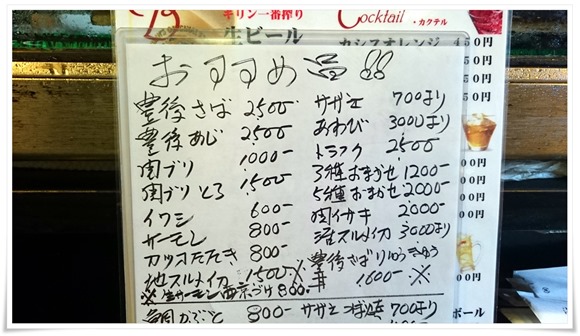 キリン一番搾り
生ビール
Cocktail ・カクテル
カシスオレンジ 450円
おすすめ
豊後さば 2500-
豊後あじ 2500-
関ブリ 1000-
関ブリとろ 1500-
イワシ 600-
サーモン 800-
カツオたたき 800-
地スルメイカ 1500-※
※生サーモン西京づけ 800-
サザエ 700より
あわび 3000より
トラフク 2500
3種おまかせ 1200-
5種おまかせ 2000-
関イサキ 2000-
活スルメイカ 3000より
豊後さばりゅうきゅう
1600-※
鯛かぶと 800-
サザエつぼ焼 700より
50円
50円
00円
00円
ボール